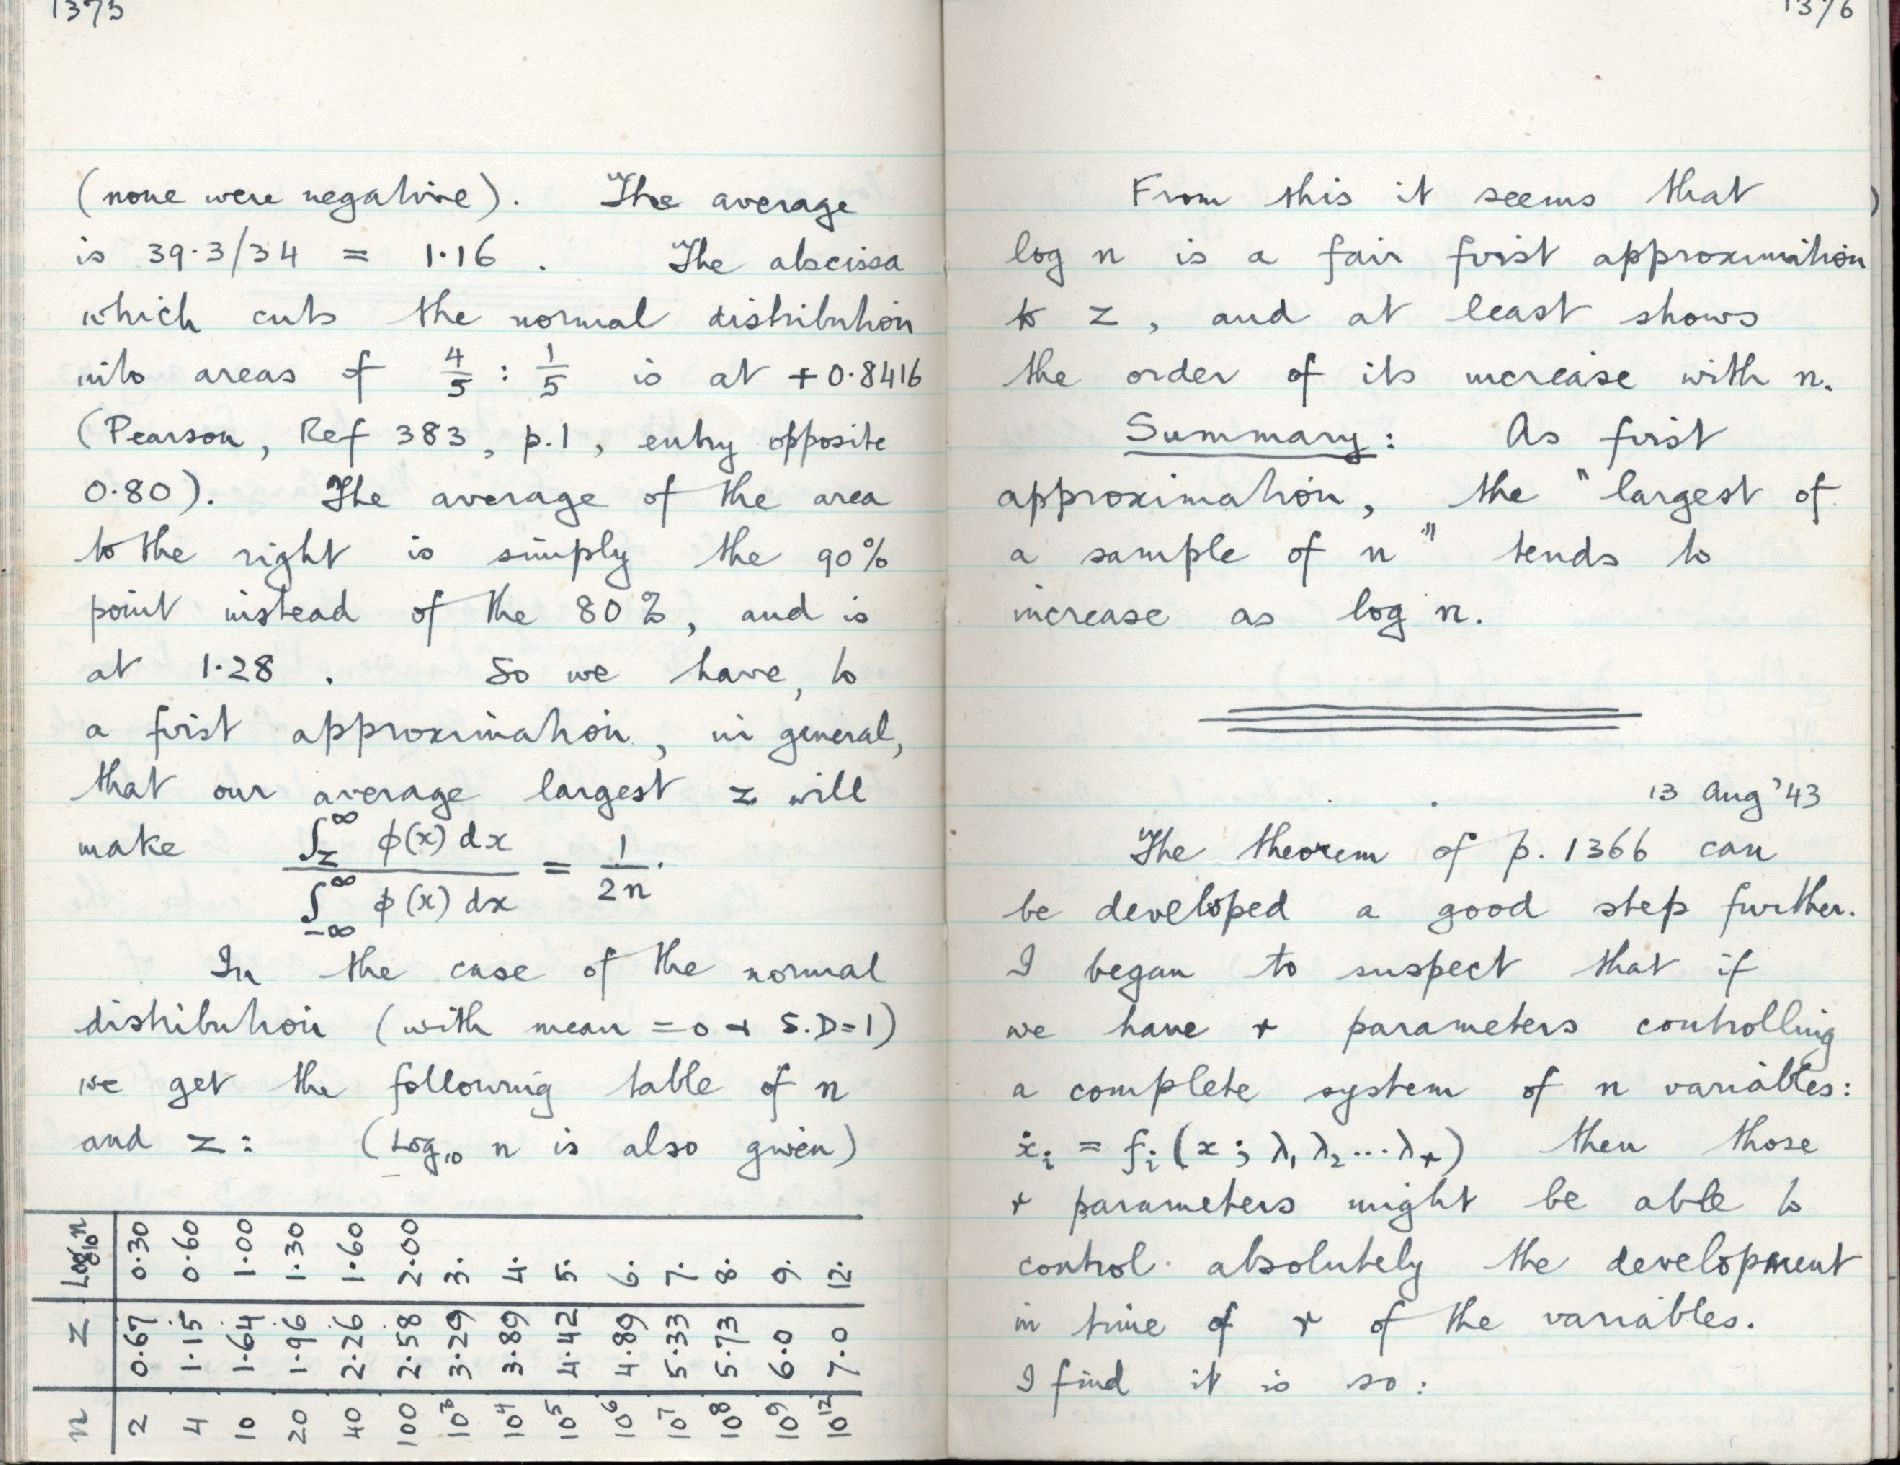 1375
(none were negative). The average
is 39·3/34 = 1·16 . The abscissa
which cuts the normal distribution
into areas of 4/5 : 1/5 is at +0·8416
(Pearson, Ref 383, p.1, entry opposite
0·80). The average of the area
to the right is simply the 90%
point instead of the 80%, and is
at 1·28 . So we have, to
a first approximation, in general,
that our average largest z will
make ∫_z^∞ φ(x) dx / ∫_{-∞}^∞ φ(x) dx = 1/2n.
In the case of the normal
distribution (with mean = 0 + S.D=1)
we get the following table of n
and z: (Log₁₀ n is also given)
n z Log₁₀n
2 0·67 0·30
4 1·15 0·60
10 1·64 1·00
20 1·96 1·30
40 2·26 1·60
100 2·58 2·00
10³ 3·29 3·
10⁴ 3·89 4·
10⁵ 4·42 5·
10⁶ 4·89 6·
10⁷ 5·33 7·
10⁸ 5·73 8·
10⁹ 6·0 9·
10¹² 7·0 12·
1376
From this it seems that
log n is a fair first approximation
to z, and at least shows
the order of its increase with n.
Summary: As first
approximation, the "largest of
a sample of n" tends to
increase as log n.
13 Aug '43
The theorem of p. 1366 can
be developed a good step further.
I began to suspect that if
we have r parameters controlling
a complete system of n variables:
ẋᵢ = fᵢ(x; λ₁ λ₂ ... λᵣ) then those
r parameters might be able to
control absolutely the development
in time of r of the variables.
I find it is so: